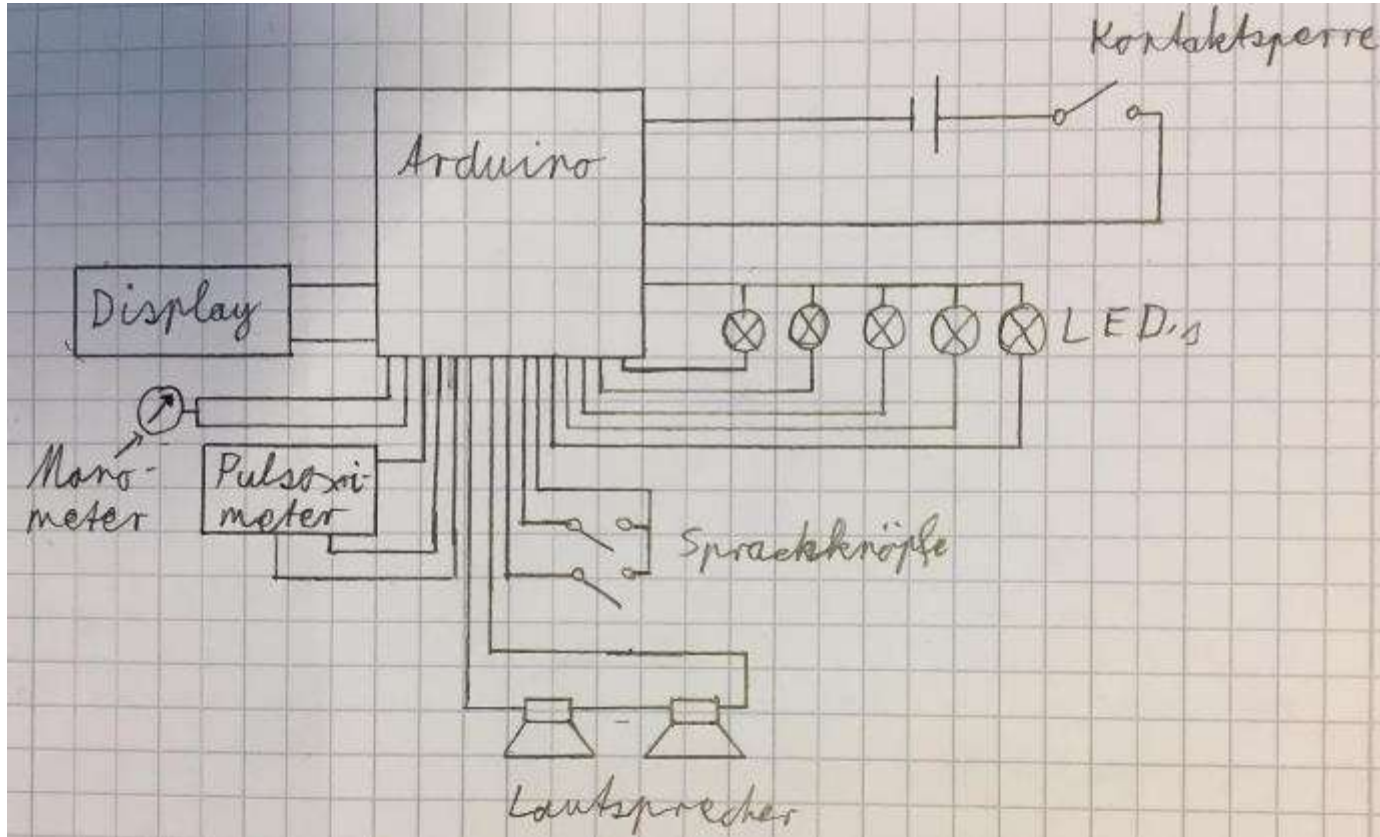 Kontaktsperre
Arduino
Display
LED's
Mano-
meter
Pulsoxi-
meter
Sprachknöpfe
Lautsprecher